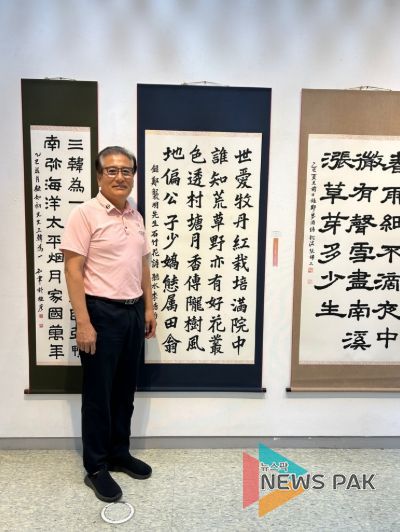 春雨細不滴夜中
微有聲雪盡南溪
漲草芽多少生
世愛牡丹紅栽培滿院中
誰知荒草野亦有好花叢
色透村塘月香傳隴樹風
地偏公子少嬌態属田翁
錄鄭襲明先生石竹花詩
三韓為一
鴨
南弥海洋太平烟月家國萬年
뉴스팍
NEWS PAK